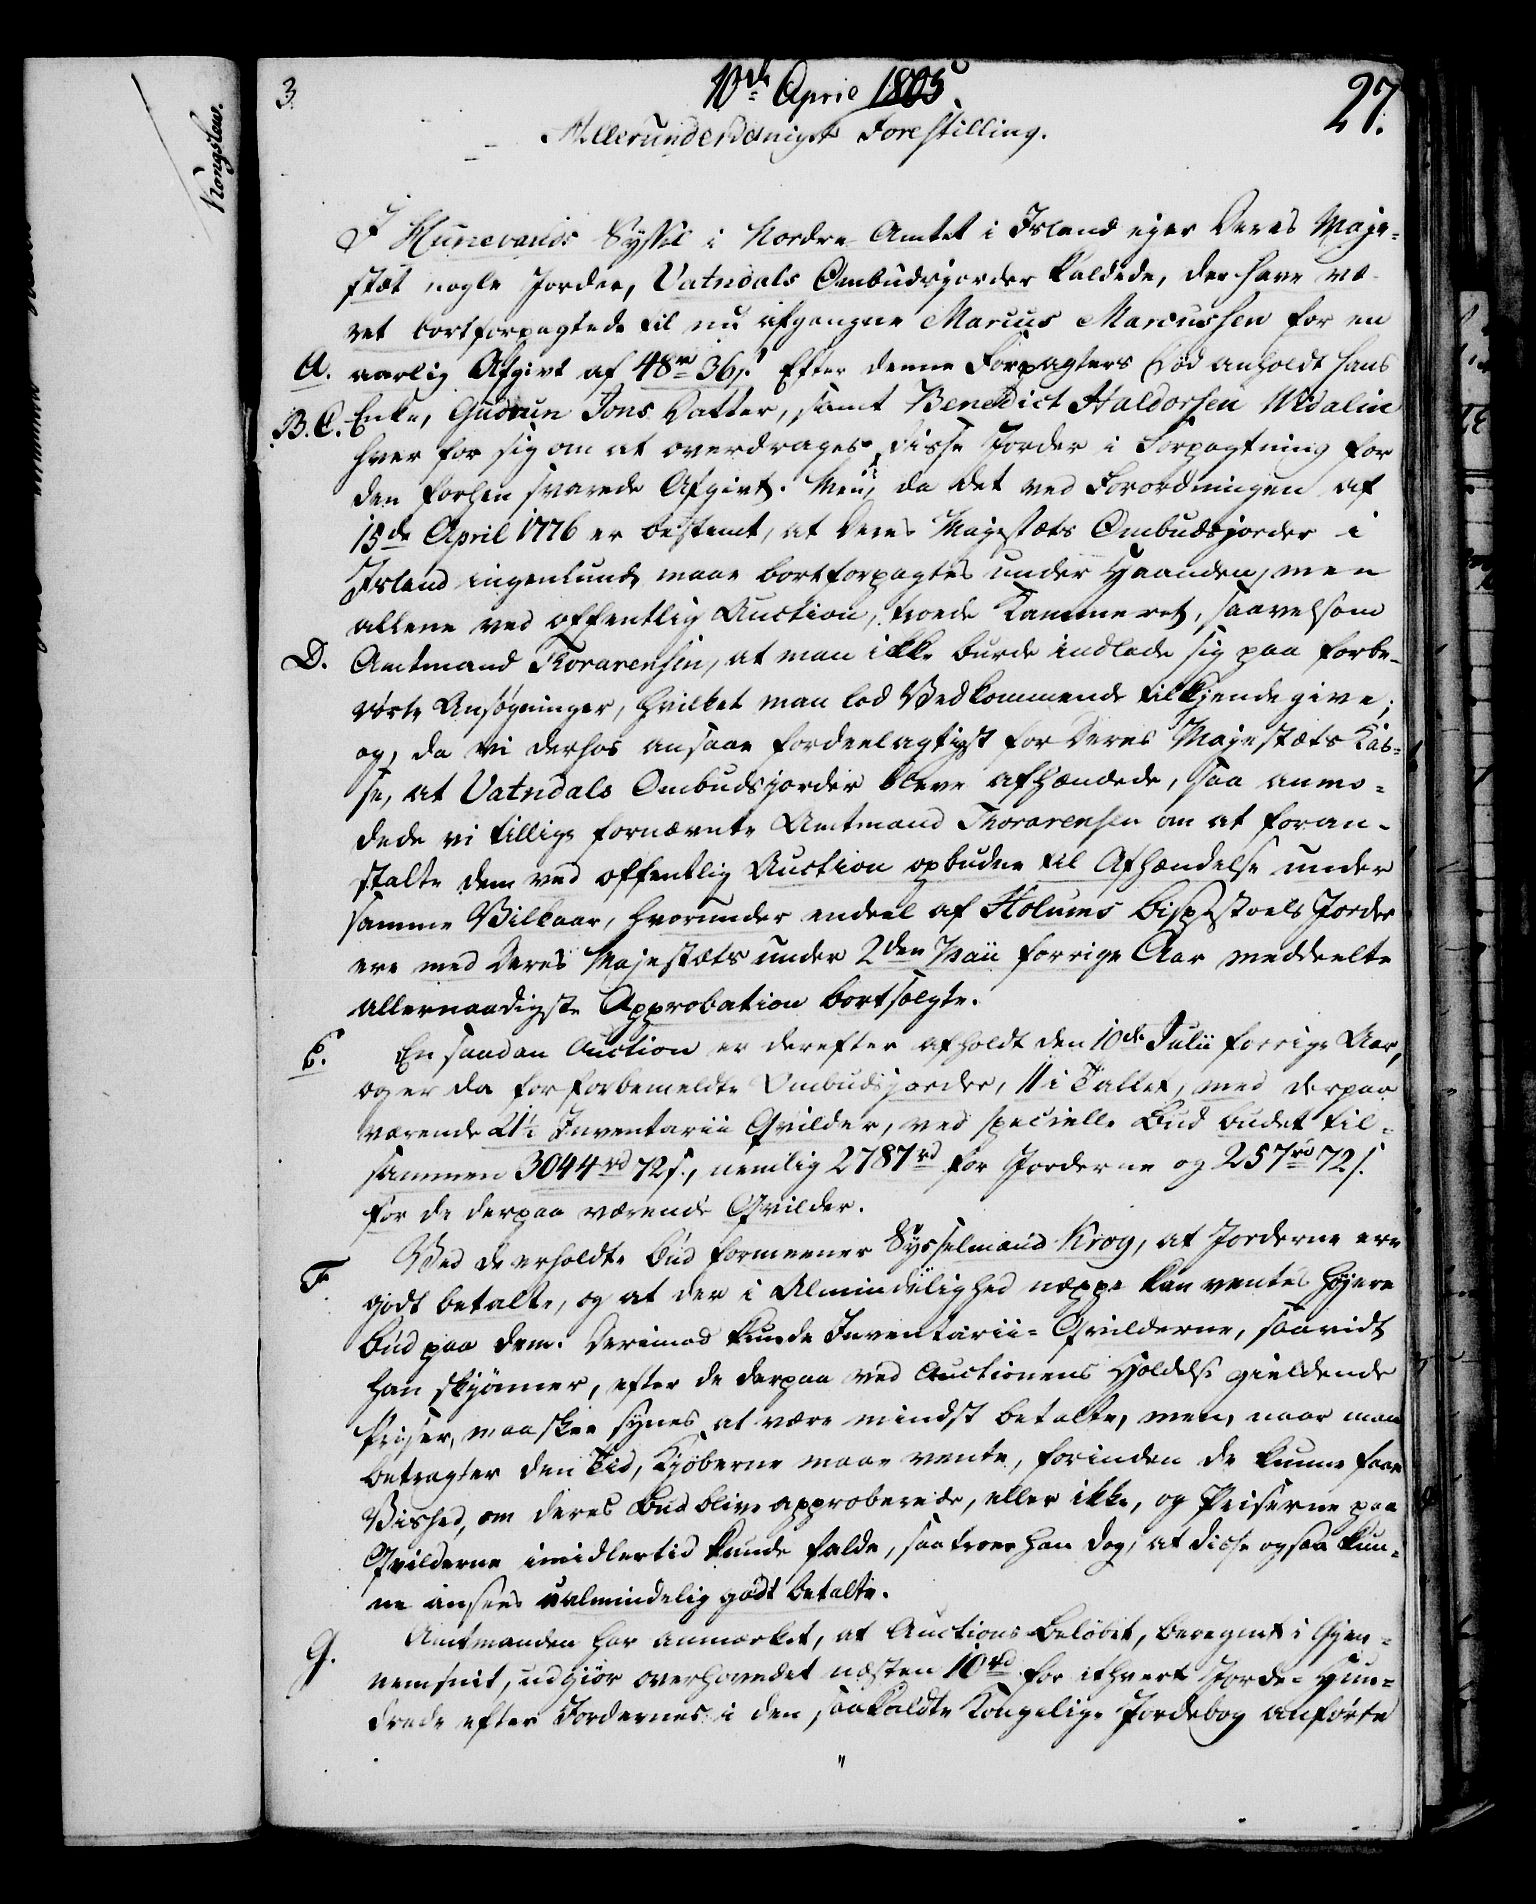 Kongslew.
3.
10de April 1805
27.
Allerunderdanigst Forestilling.
I Hunevands Syssel i Nordre Amtet i Island ejer Deres Maje-
stæt nogle Jorder, Vatndals Ombudsjorder kaldede, der have væ-
ret bortforpagtede til nu afgangne Marcus Marcussen for en
A. aarlig Afgivt af 48rd 36s. Efter denne Forpagters Død anholdt hans
B.C. Enke, Gudrun Jons Datter, samt Benedict Haldorsen Widalin
hver for sig om at overdrages disse Jorder i Forpagtning for
den forhen svarede Afgivt. Men, da det ved Forordningen af
15de April 1776 er bestemt, at Deres Majestæts Ombudsjorder i
Island ingenlunde maae bortforpagtes under Haanden, men
allene ved offentlig Auction, troede Kammeret, saavelsom
D. Amtmand Thorarensen, at man ikke burde indlade sig paa forbe-
rørte Ansøgninger, hvilket man lod Vedkommende tilkjendegive;
og, da vi derhos ansaae fordeelagtigst for Deres Majestæts Kas-
se, at Vatndals Ombudsjorder bleve afhændede, saa anmo-
dede vi tillige fornævnte Amtmand Thorarensen om at foran-
stalte dem ved offentlig Auction opbudne til Afhændelse under
samme Vilkaar, hvorunder endeel af Holums Bispestoels Jorder
ere med Deres Majestæts under 2den Maii forrige Aar meddeelte
allernaadigste Approbation bortsolgte.
E. En saadan Auction er derefter afholdt den 10de Julii forrige Aar,
og er da for forbemeldte Ombudsjorder, 11 i Tallet, med derpaa
værende 21½ Inventarii Qvilder, ved specielle Bud budet til-
sammen 3044rd 72s., nemlig 2787rd for Jorderne og 257rd 72s.
for de derpaa værende Qvilder.
F. Ved de erholdte Bud formeener Sysselmand Krog, at Jorderne ere
godt betalte, og at der i Almindelighed neppe kan ventes høiere
Bud paa dem. Derimod kunde Inventarii-Qvilderne, saavidt
han skjønner, efter de derpaa ved Auctionens Holdelse gieldende
Priser, maaskee synes at være mindst betalte, men, naar man
betragter den Tid, Kjøberne maae vente, forinden de kunne faae
Vished, om deres Bud blive approberede, eller ikke, og Priserne paa
Qvilderne imidlertid kunde falde, saa troer han dog, at disse ogsaa kun-
ne ansees ualmindelig godt betalte.
G. Amtmanden har anmærket, at Auctions Beløbet, beregnet i Gjen-
nemsnit, udgiør overhovedet næsten 10rd for ethvert Jorde-Hun-
drede efter Jordernes i den saakaldte Kongelige Jordebog anførte
"